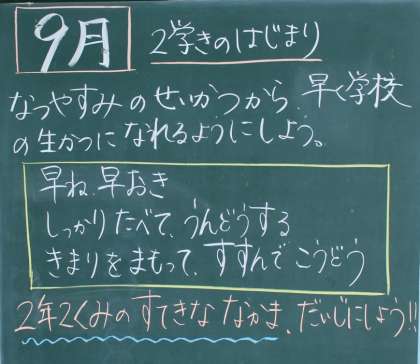 9月
2学きのはじまり
なつやすみのせいかつから、早く学校
の生かつになれるようにしよう。
早ね、早おき
しっかりたべて、うんどうする
きまりをまもって、すすんでこうどう
2年2くみのすてきななかま、だいじにしよう!!